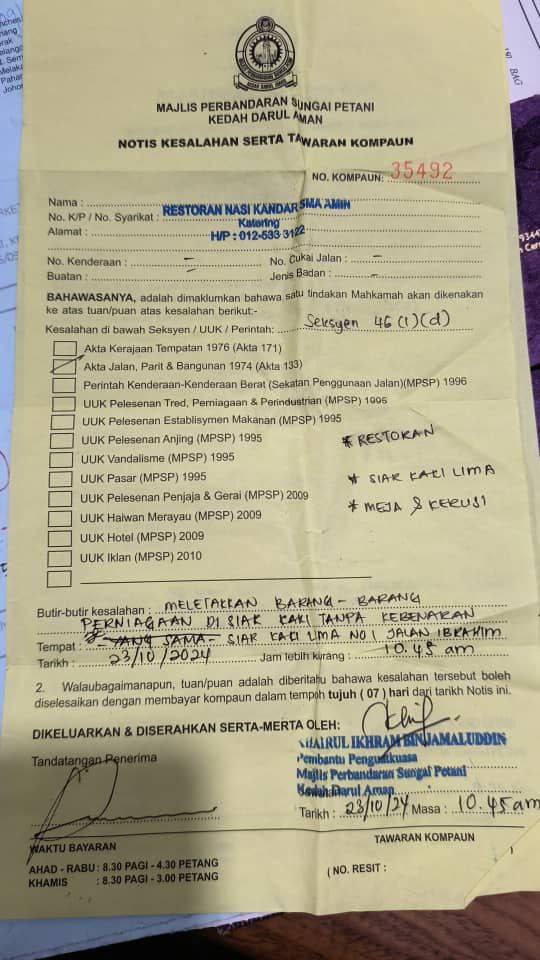 MAJLIS PERBANDARAN SUNGAI PETANI
KEDAH DARUL AMAN
NOTIS KESALAHAN SERTA TAWARAN KOMPAUN
NO. KOMPAUN: 35492
Nama :
No. K/P / No. Syarikat : RESTORAN NASI KANDAR SMA AMIN
Katering
Alamat : H/P : 012-533 3122
No. Kenderaan : – No. Cukai Jalan : –
Buatan : – Jenis Badan : –
BAHAWASANYA, adalah dimaklumkan bahawa satu tindakan Mahkamah akan dikenakan
ke atas tuan/puan atas kesalahan berikut:-
Kesalahan di bawah Seksyen / UUK / Perintah: Seksyen 46 (1) (d)
Akta Kerajaan Tempatan 1976 (Akta 171)
Akta Jalan, Parit & Bangunan 1974 (Akta 133)
Perintah Kenderaan-Kenderaan Berat (Sekatan Penggunaan Jalan)(MPSP) 1996
UUK Pelesenan Tred, Perniagaan & Perindustrian (MPSP) 1995
UUK Pelesenan Establisymen Makanan (MPSP) 1995
UUK Pelesenan Anjing (MPSP) 1995
* RESTORAN
UUK Vandalisme (MPSP) 1995
UUK Pasar (MPSP) 1995
* SIAR KAKI LIMA
UUK Pelesenan Penjaja & Gerai (MPSP) 2009
* MEJA & KERUSI
UUK Haiwan Merayau (MPSP) 2009
UUK Hotel (MPSP) 2009
UUK Iklan (MPSP) 2010
Butir-butir kesalahan : MELETAKKAN BARANG - BARANG
PERNIAGAAN DI SIAR KAKI TANPA KEBENARAN
Tempat : - YANG SAMA - SIAR KAKI LIMA NO 1 JALAN IBRAHIM
Tarikh : 23/10/2024 Jam lebih kurang : 10.45 am
2. Walaubagaimanapun, tuan/puan adalah diberitahu bahawa kesalahan tersebut boleh
diselesaikan dengan membayar kompaun dalam tempoh tujuh ( 07 ) hari dari tarikh Notis ini.
DIKELUARKAN & DISERAHKAN SERTA-MERTA OLEH:
Tandatangan Penerima
KHAIRUL IKHRAM BIN JAMALUDDIN
Pembantu Penguatkuasa
Majlis Perbandaran Sungai Petani
Kedah Darul Aman
Tarikh : 23/10/24 Masa : 10.45 am
WAKTU BAYARAN
TAWARAN KOMPAUN
AHAD - RABU : 8.30 PAGI - 4.30 PETANG
KHAMIS : 8.30 PAGI - 3.00 PETANG
( NO. RESIT :